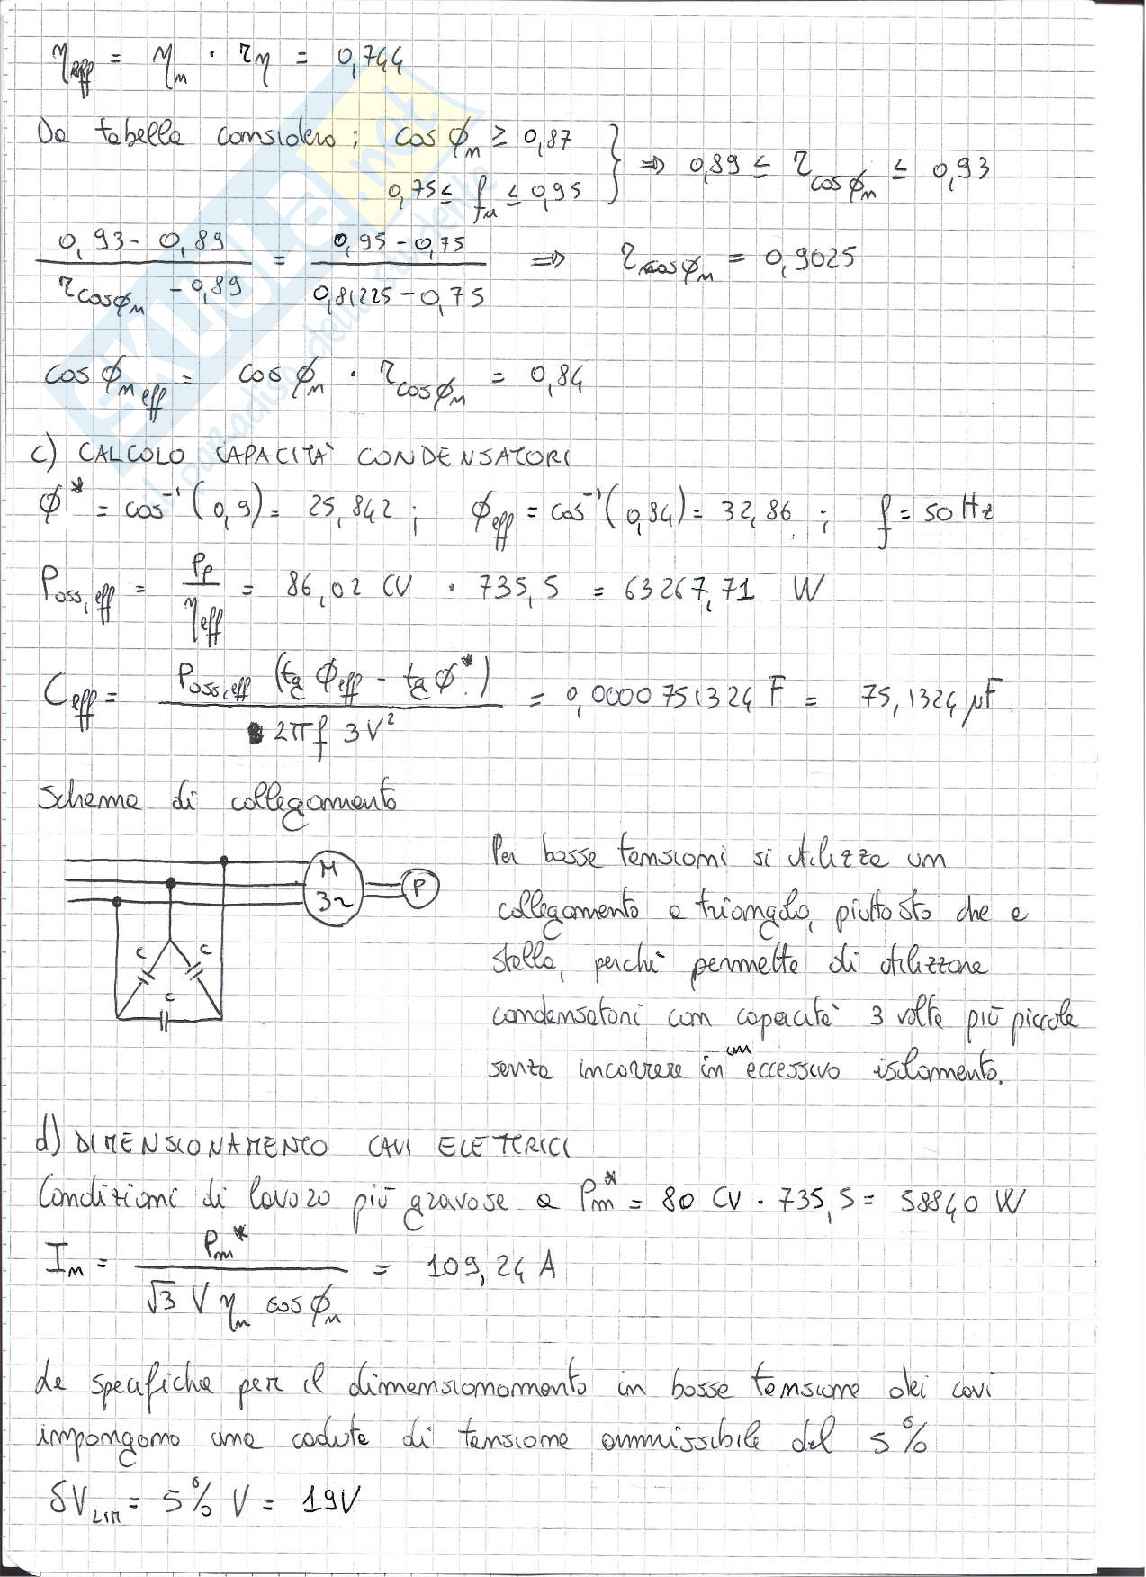 η_eff = η_m · τη = 0,744
Da tabella considero: cos ϕ_m ≥ 0,87
0,75 ≤ f_m ≤ 0,95 } ⇒ 0,89 ≤ τ_cosϕm ≤ 0,93
(0,93 - 0,89) / (τ_cosϕm - 0,89) = (0,95 - 0,75) / (0,81225 - 0,75) ⇒ τ_cosϕm = 0,9025
cos ϕ_m eff = cos ϕ_m · τ_cosϕm = 0,84
c) CALCOLO CAPACITÀ CONDENSATORI
ϕ* = cos⁻¹(0,9) = 25,842 ; ϕ_eff = cos⁻¹(0,84) = 32,86 ; f = 50 Hz
P_ass,eff = P_p / η_eff = 86,02 CV · 735,5 = 63267,71 W
C_eff = P_ass,eff (tg ϕ_eff - tg ϕ*) / 2πf 3V² = 0,0000751324 F = 75,1324 μF
Schema di collegamento
M
3~
P
C C
C
Per basse tensioni si utilizza un
collegamento a triangolo, piuttosto che a
stella, perchè permette di utilizzare
condensatori con capacità 3 volte più piccole
senza incorrere in un eccessivo isolamento.
d) DIMENSIONAMENTO CAVI ELETTRICI
Condizioni di lavoro più gravose a P_m* = 80 CV · 735,5 = 58840 W
I_m = P_m* / √3 V η_m cos ϕ_m = 109,24 A
Le specifiche per il dimensionamento in bassa tensione dei cavi
impongono una caduta di tensione ammissibile del 5%
δV_LIM = 5% V = 19V